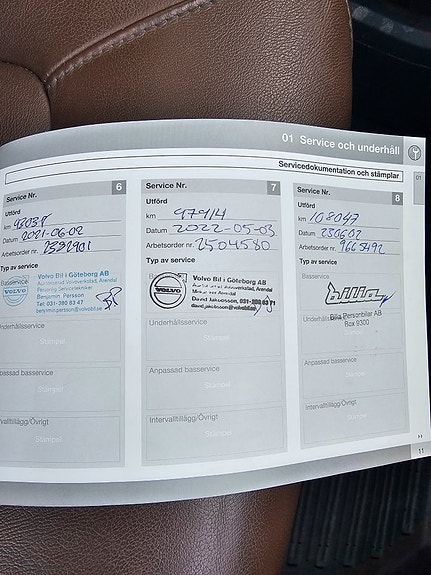 01 Service och underhåll
Servicedokumentation och stämplar
01
Service Nr. 6
Utförd
km
Datum 2021-06-02
Arbetsorder nr. 2332901
Typ av service
Basservice
VOLVO
Volvo Bil i Göteborg AB
Auktoriserad Volvoverkstad, Arendal
Personlig Servicetekniker
Benjamin Persson
Tel 031-380 83 47
benjamin.persson@volvobil.se
Underhållsservice
Stämpel
Anpassad basservice
Stämpel
Intervalltillägg/Övrigt
Stämpel
Service Nr. 7
Utförd
km 97914
Datum 2022-05-03
Arbetsorder nr. 2504580
Typ av service
VOLVO
Volvo Bil i Göteborg AB
Auktoriserad Volvoverkstad, Arendal
David Jakobsson, 031-380 83 71
david.jakobsson@volvobil.se
Underhållsservice
Stämpel
Anpassad basservice
Stämpel
Intervalltillägg/Övrigt
Stämpel
Service Nr. 8
Utförd
km 108047
Datum 230602
Arbetsorder nr. 9665492
Typ av service
Basservice
bilia
Bilia Personbilar AB
Box 9300
Underhållsservice
Stämpel
Anpassad basservice
Stämpel
Intervalltillägg/Övrigt
Stämpel
››
11